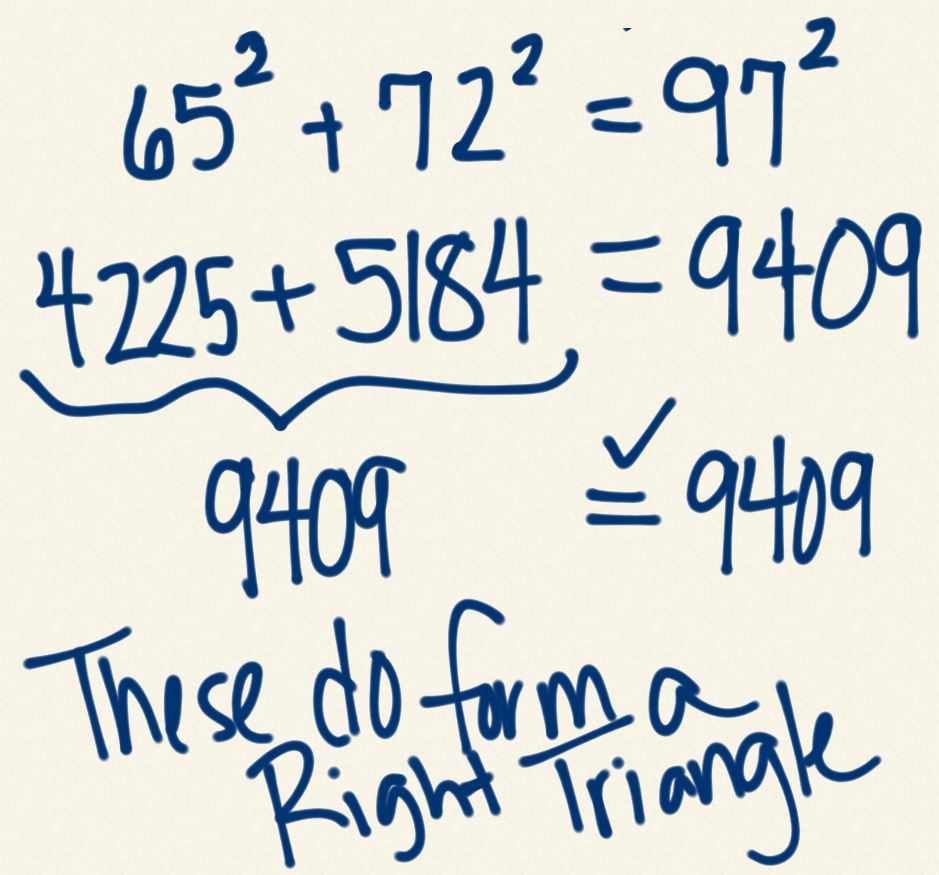 65² + 72² = 97²
4225 + 5184 = 9409
9409 = 9409
These do form a
Right Triangle